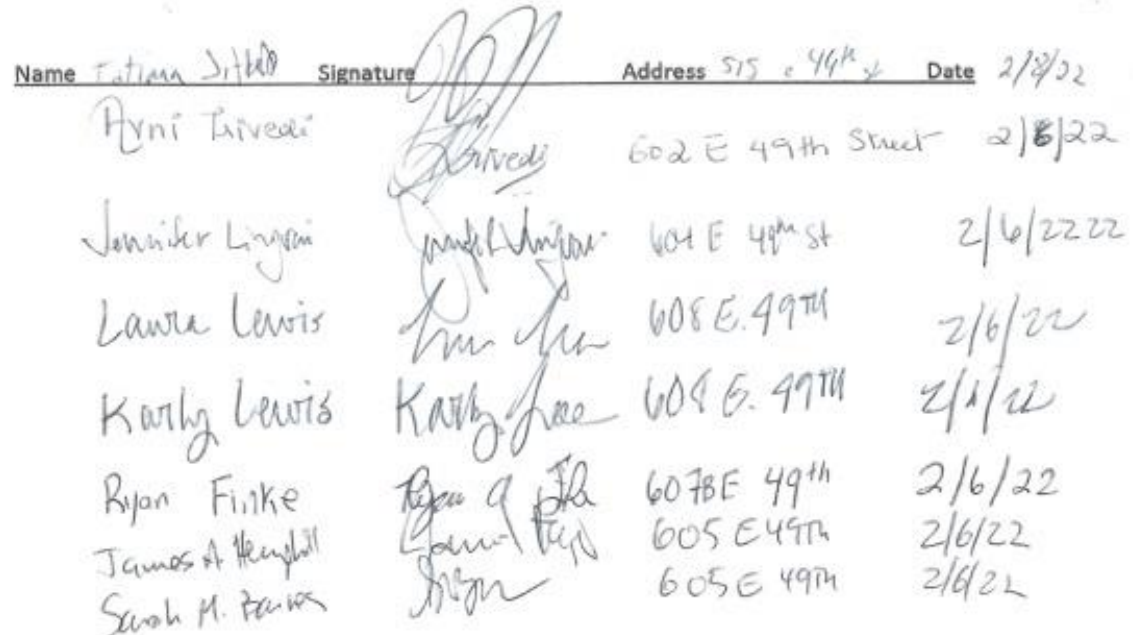 Name Fatima Signature Address 515 e 49th st Date 2/8/22
Arni Trivedi Trivedi 602 E 49th Street 2/6/22
Jennifer Lingvai 604 E 49th St 2/6/2222
Laura Lewis 608 E. 49TH 2/6/22
Karly Lewis Karly 608 E. 49TH 2/6/22
Ryan Finke Ryan 607BE 49th 2/6/22
James A Hemphill 605 E 49Th 2/6/22
Sarah M. Barnes 605 E 49Th 2/6/22